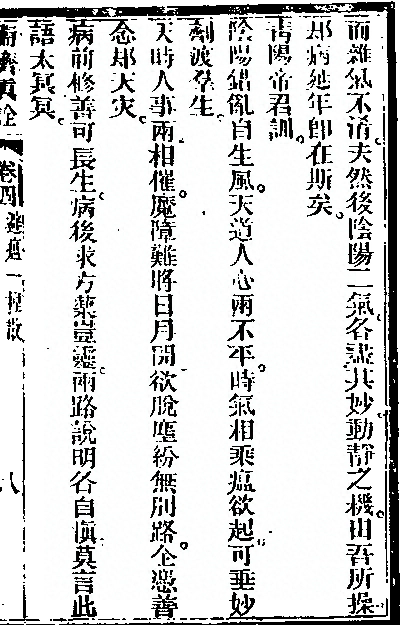 而雜氣不淆夫然後陰陽二氣各盡其妙動靜之機由吾所操
却病延年即在斯矣
青陽帝君訓
陰陽錯亂自生風天道人心兩不平時氣相乘瘟欲起可垂妙
劑渡羣生
天時人事兩相催魔障難將日月開欲脫塵紛無別路全憑善
念却天灾
病前修善可長生病後求方藥豈靈兩路說明各自慎莫言此
語太冥冥
卷四
八